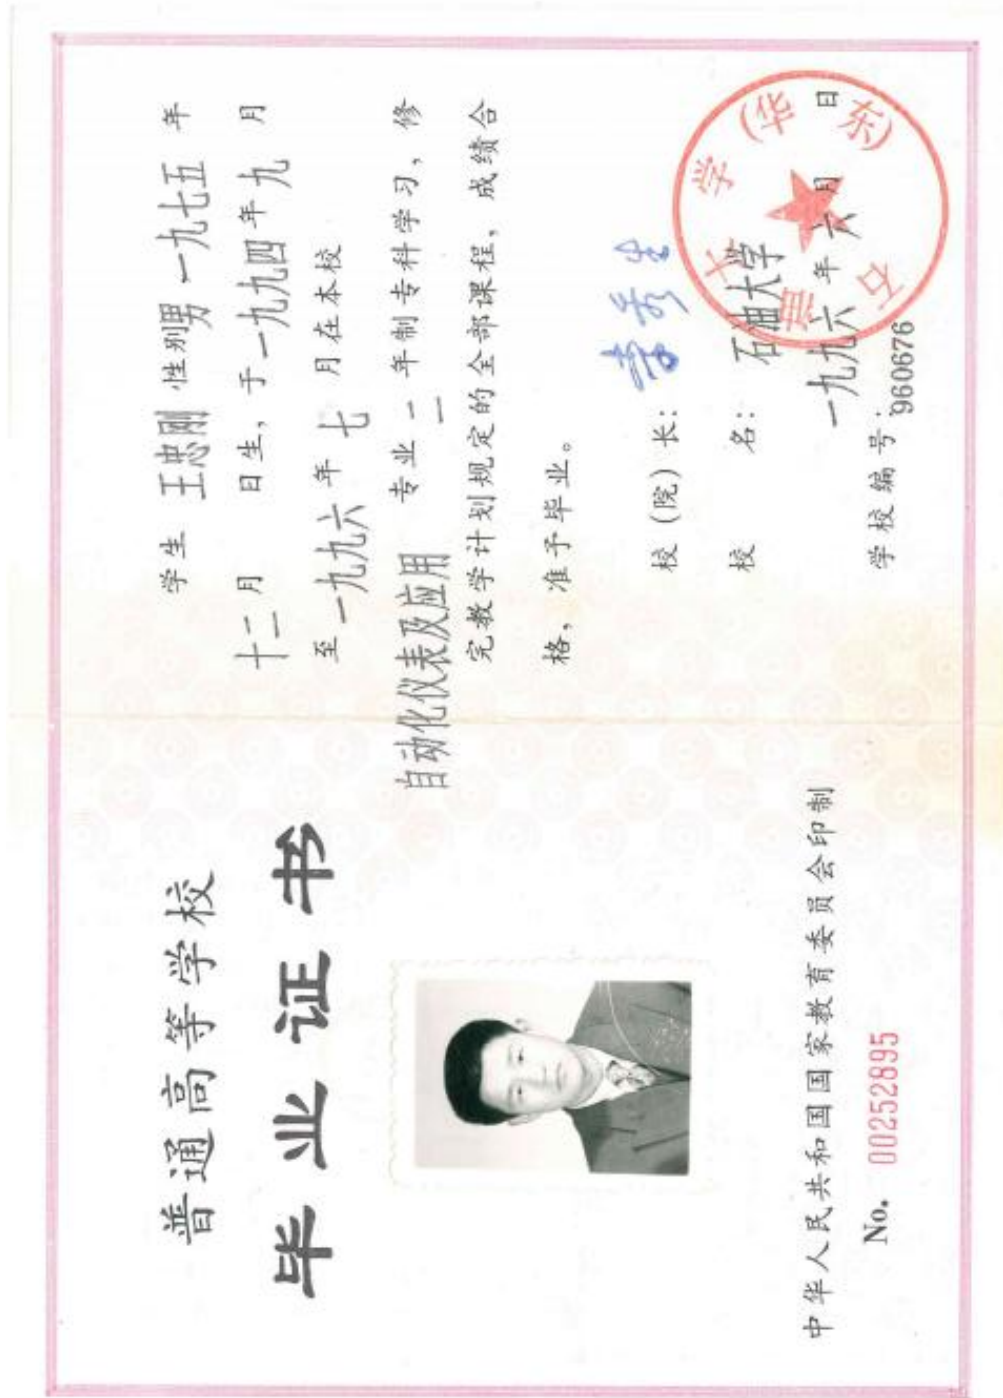 普通高等学校
毕业证书
中华人民共和国国家教育委员会印制
No. 00252895
学生 王忠刚 性别男 一九七五 年
十二月 日生，于 一九九四年九 月
至 一九九六 年 七 月在本校
自动化仪表及应用 专业 二 年制专科学习，修
完教学计划规定的全部课程，成绩合
格，准予毕业。
校（院）长：
校 名： 石油大学
一九九六 年 六 月 日
学校编号：960676
石油大学（华东）